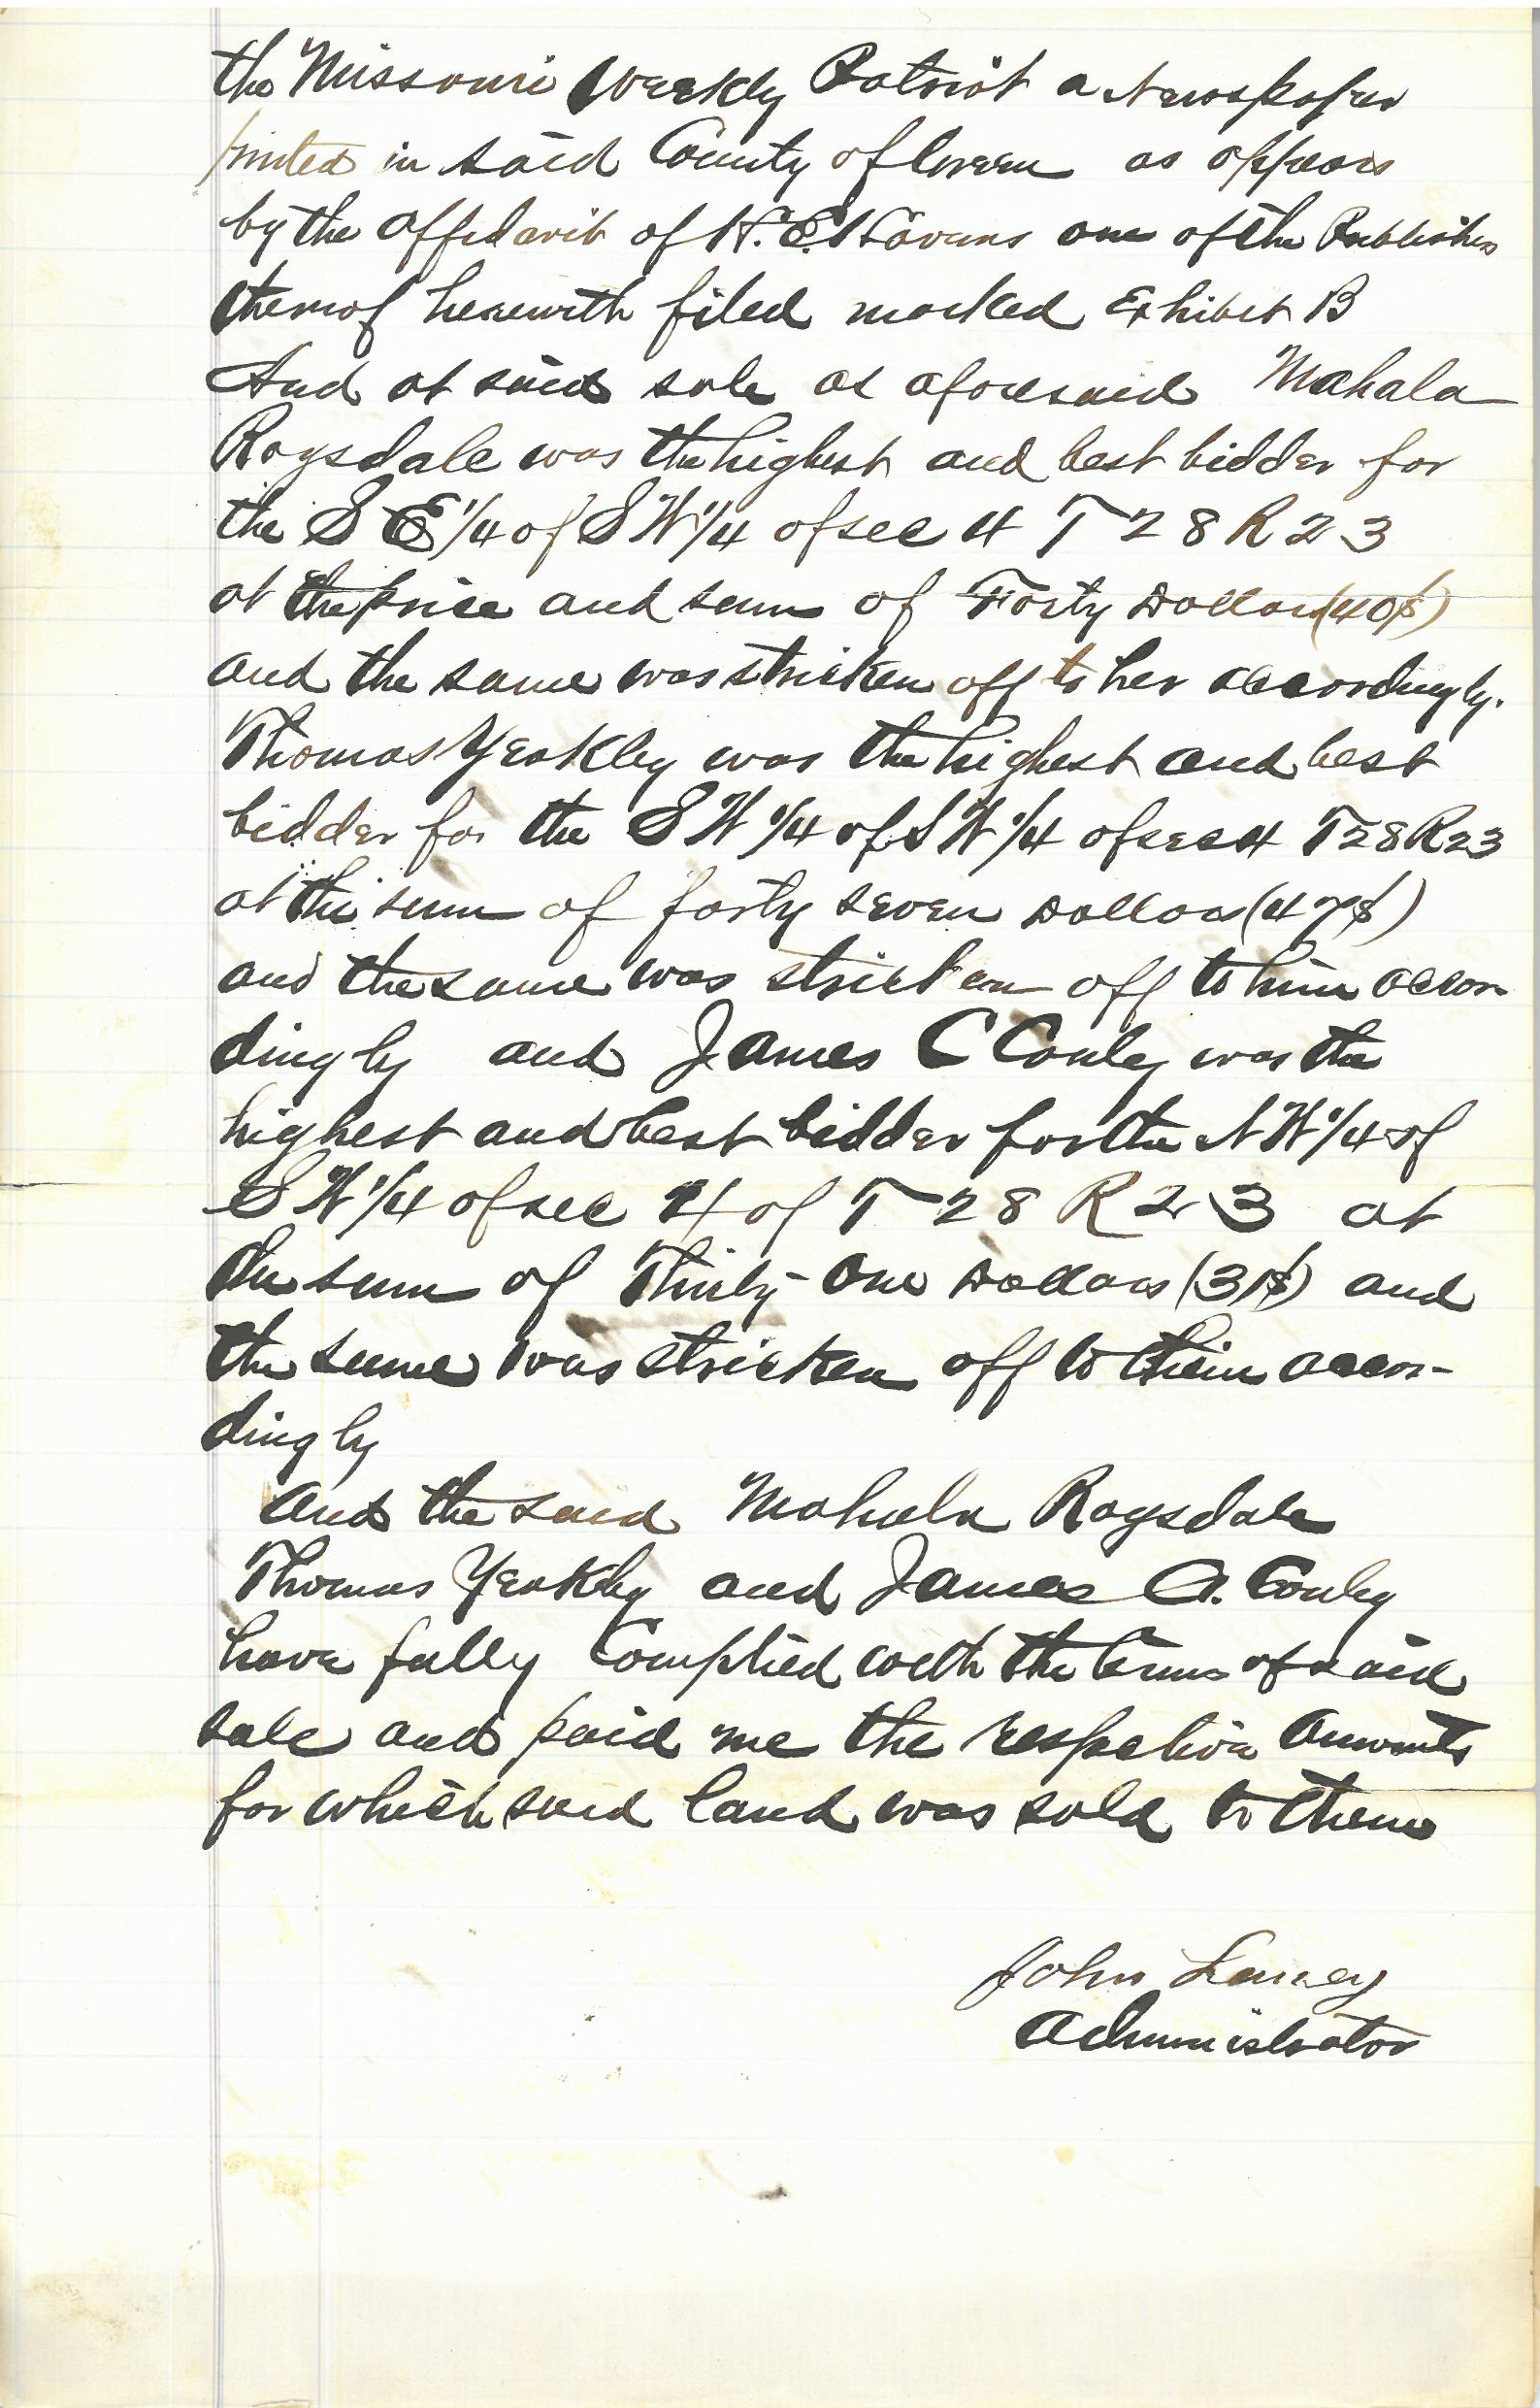 the Missouri Weekly Patriot a Newspaper
printed in said County of Green as appears
by the affidavit of H. E. Havens one of the Publishers
thereof herewith filed marked Exhibit B
And at said sale as aforesaid Mahala
Ragsdale was the highest and best bidder for
the S E 1/4 of S W 1/4 of sec 4 T 28 R 23
at the price and sum of Forty Dollars (40$)
and the same was stricken off to her accordingly.
Thomas Yeakley was the highest and best
bidder for the S W 1/4 of S W 1/4 of sec 4 T 28 R 23
at the sum of forty seven Dollars (47$)
and the same was stricken off to him accor-
dingly and James C Conley was the
highest and best bidder for the N W 1/4 of
S W 1/4 of sec 4 of T 28 R 23 at
the sum of Thirty-One Dollars (31$) and
the same was stricken off to him accor-
dingly
And the said Mahala Ragsdale
Thomas Yeakley and James C. Conley
have fully Complied with the terms of said
sale and paid me the respective Amounts
for which said land was sold to them
John
Administrator